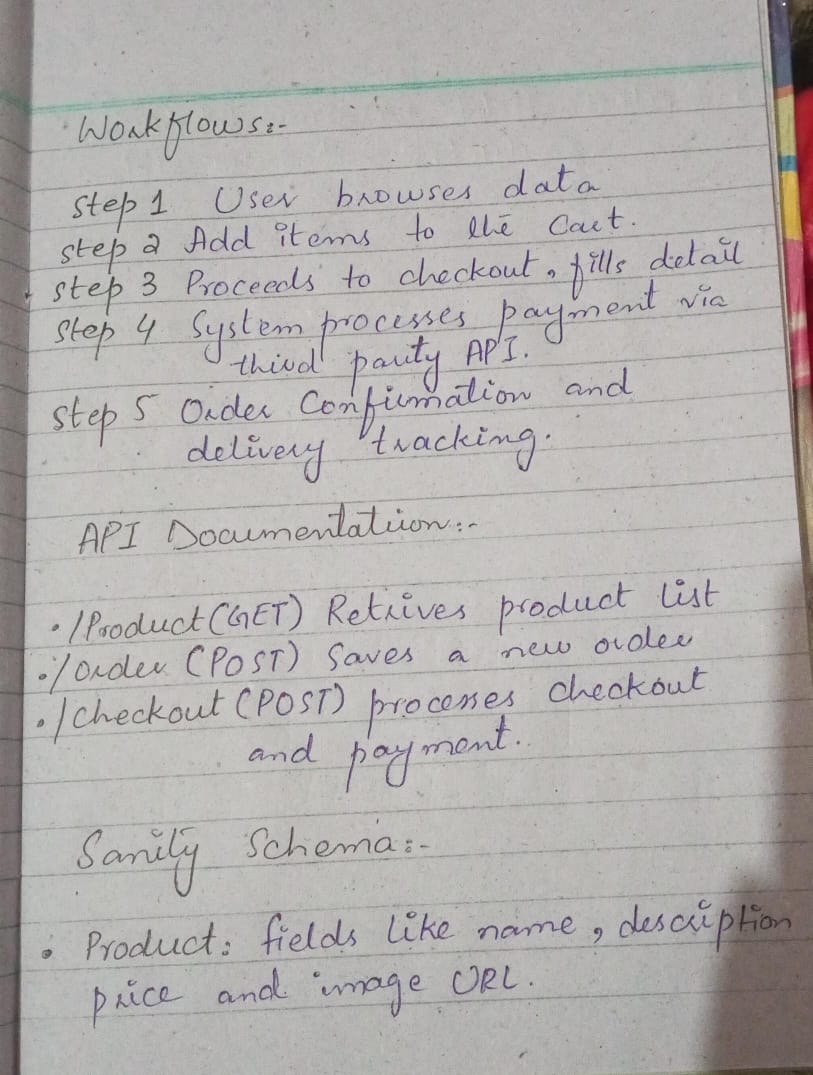 Workflows:-
Step 1 User browses data
Step 2 Add items to the Cart.
Step 3 Proceeds to checkout, fills detail
Step 4 System processes payment via
third party API.
Step 5 Order Confirmation and
delivery tracking.
API Documentation:-
• /Product (GET) Retrives product list
• /order (POST) Saves a new order
• /checkout (POST) processes checkout
and payment.
Sanity Schema:-
• Product: fields like name, description
price and image URL.